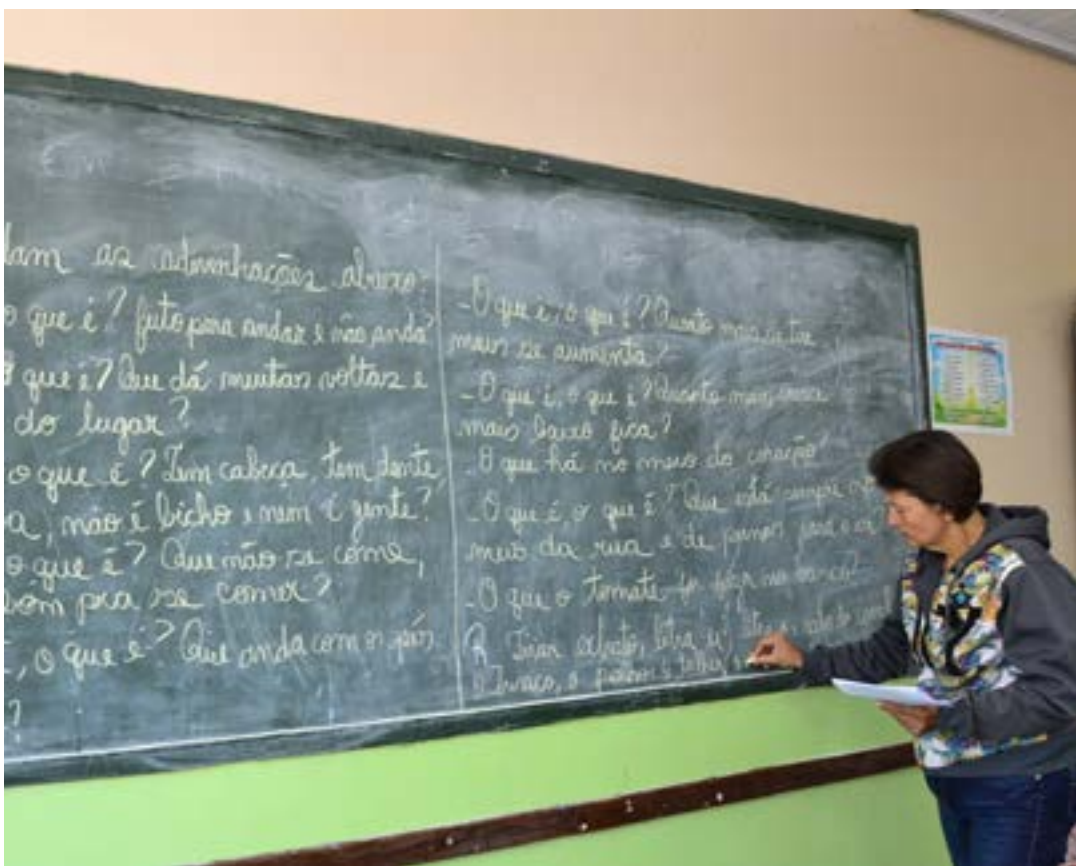 dam as adivinhações abaixo:
o que é? feito para andar e não anda?
O que é? Que dá muitas voltas e
do lugar?
o que é? Tem cabeça, tem dente,
a, não é bicho e nem é gente?
o que é? Que não se come,
bom pra se comer?
, o que é? Que anda com os pés
?
- O que é, o que é? Quanto mais se tira
mais se aumenta?
- O que é, o que é? Quanto mais cresce
mais baixo fica?
- O que há no meio do coração?
- O que é, o que é? Que está sempre no
meio da rua e de pernas para o ar
- O que o tomate foi fazer no banco?
R. Tirar